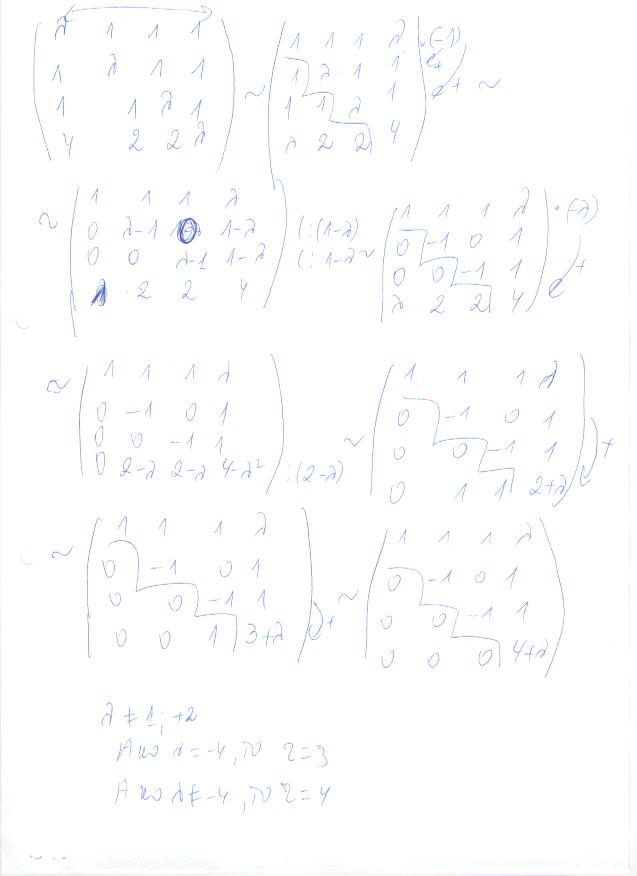 λ 1 1 1
1 λ 1 1
1 1 λ 1
4 2 2 λ
~
1 1 1 λ ·(-1)
1 λ 1 1 +
1 1 λ 1 +
λ 2 2 4
~
~
1 1 1 λ
0 λ-1 0 1-λ (:(1-λ)
0 0 λ-1 1-λ (:1-λ
λ 2 2 4
~
1 1 1 λ ·(-λ)
0 -1 0 1
0 0 -1 1 +
λ 2 2 4
~
1 1 1 λ
0 -1 0 1
0 0 -1 1
0 2-λ 2-λ 4-λ² :(2-λ)
~
1 1 1 λ
0 -1 0 1
0 0 -1 1 +
0 1 1 2+λ
~
1 1 1 λ
0 -1 0 1
0 0 -1 1
0 0 1 3+λ +
~
1 1 1 λ
0 -1 0 1
0 0 -1 1
0 0 0 4+λ
λ ≠ 1; +2
Ако λ = -4, то r = 3
Ако λ ≠ -4, то r = 4